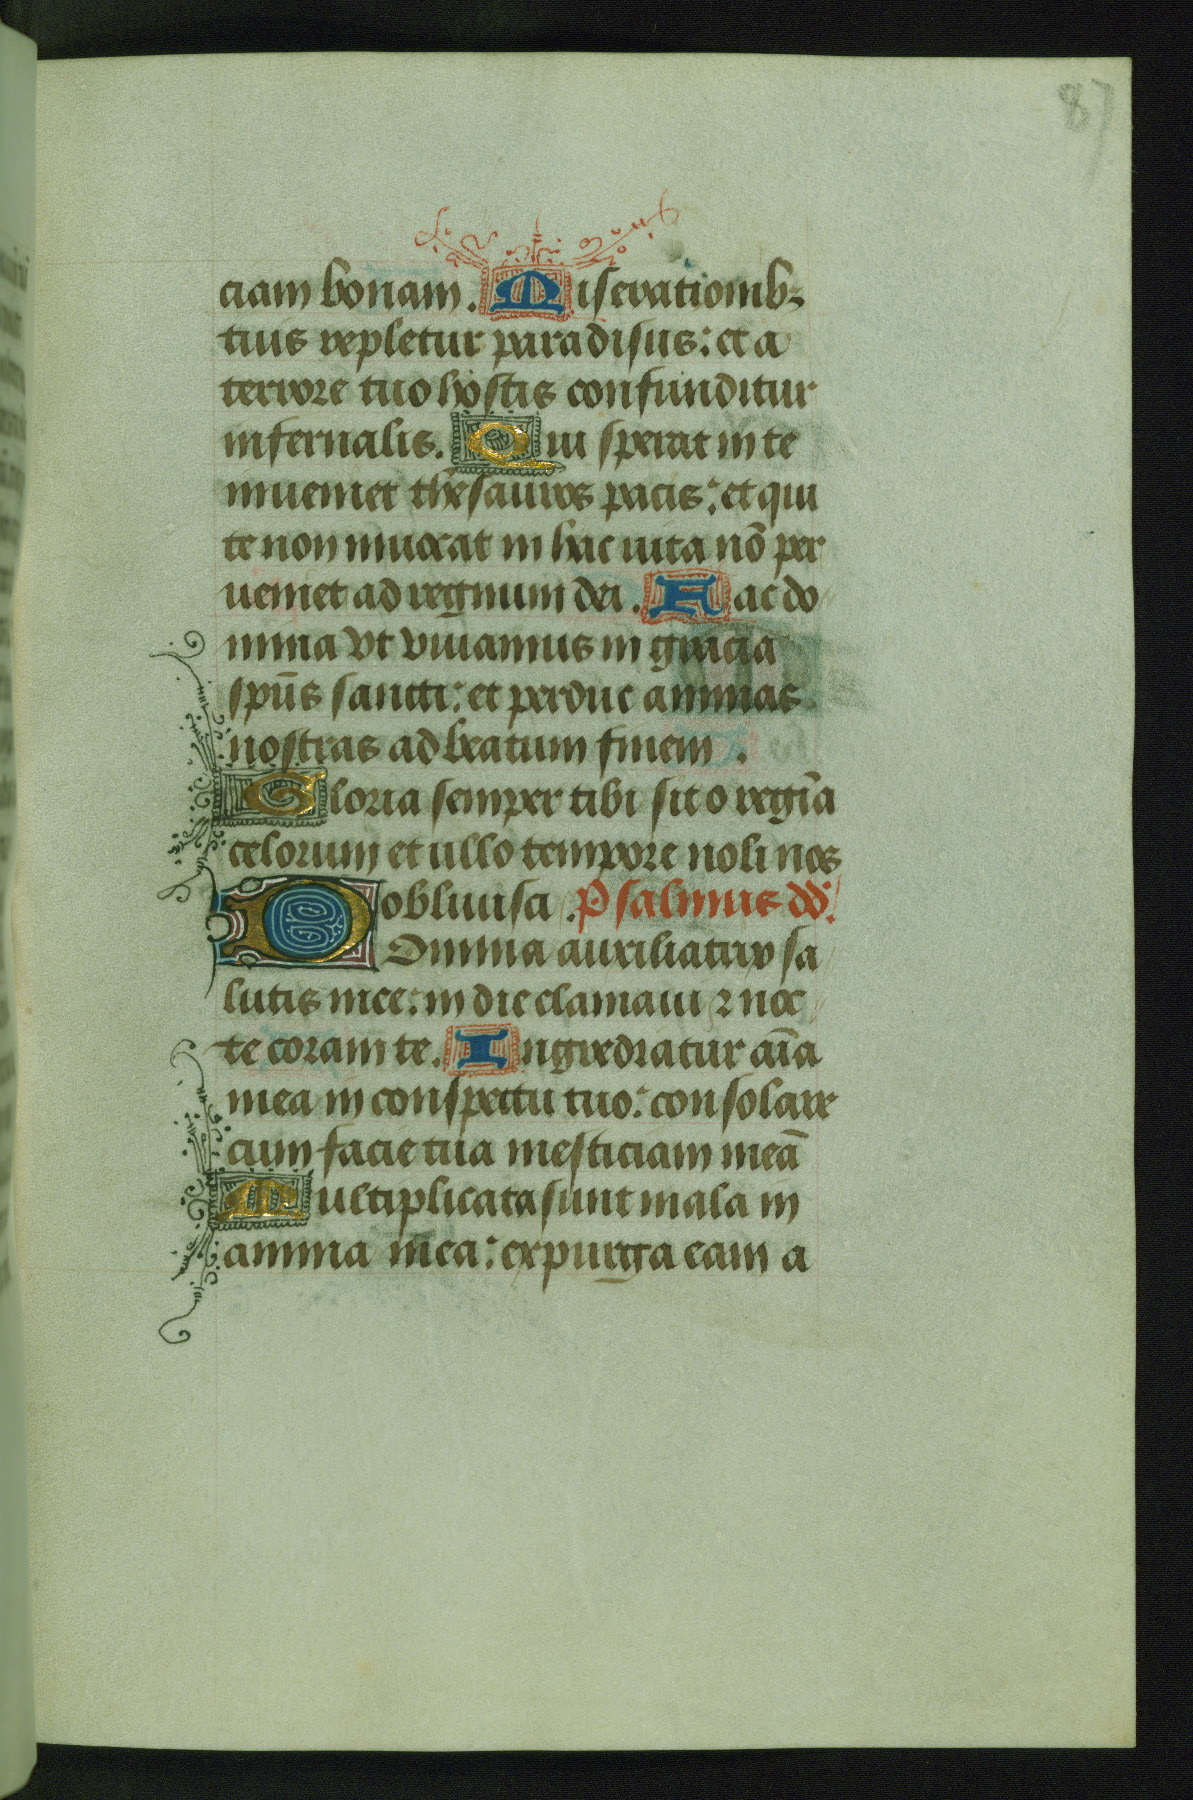 87
ciam bonam. Miserationib₃
tuis repletur paradisus: et a
terrore tuo hostis confunditur
infernalis. Qui sperat in te
inueniet thesauros pacis: et qui
te non inuocat in hac uita nō per
ueniet ad regnum dei. Fac do
mina vt viuamus in gracia
spūs sancti: et perduc animas
nostras ad beatum finem.
Gloria semper tibi sit o regīa
celorum et ullo tempore noli nos
obliuisci. Psalmus dd̄.
Domina auxiliatrix sa
lutis mee: in die clamaui ⁊ noc
te coram te. Ingrediatur aīa
mea in conspectu tuo: consolare
cum facie tua mesticiam meā
Multiplicata sunt mala in
anima mea: expurga eam a